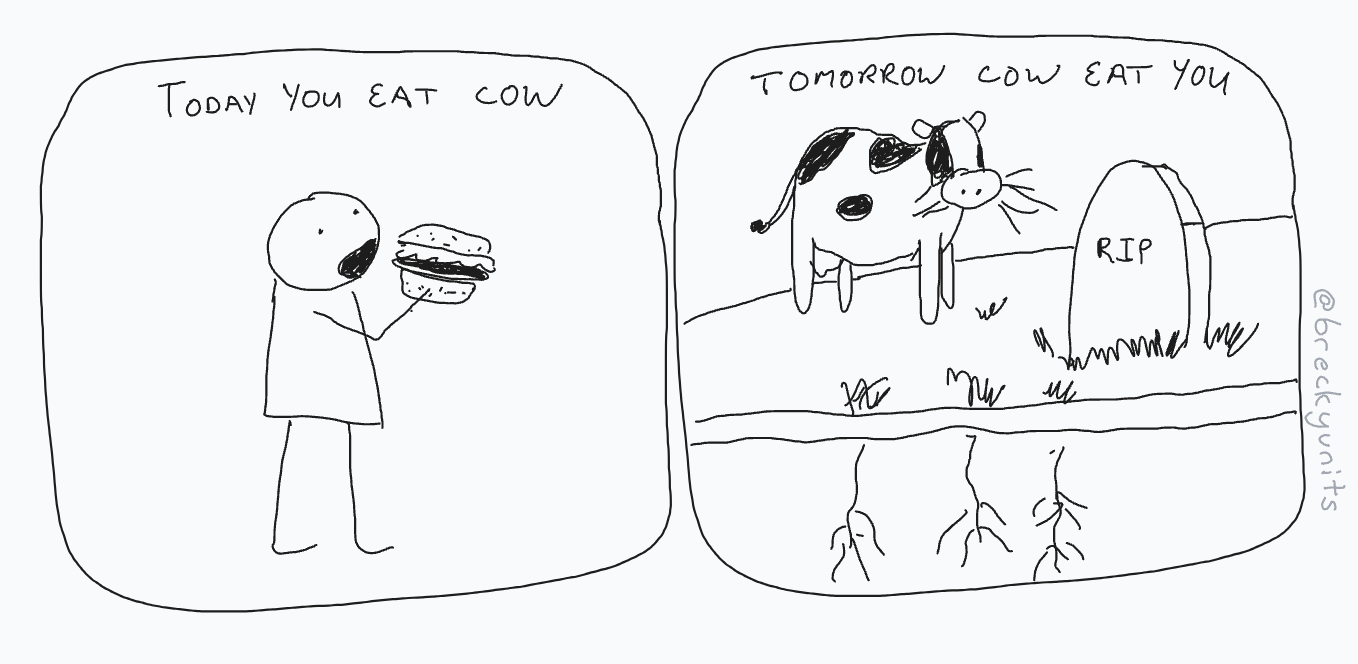 TODAY YOU EAT COW
TOMORROW COW EAT YOU
RIP
@breckyunits